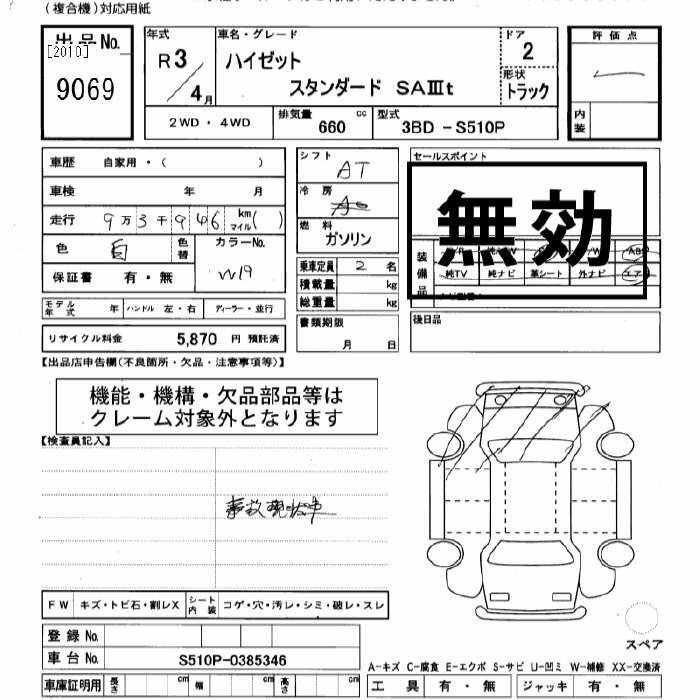 (複合機)対応用紙
出品No.
[2010]
9069
年式
R3/4月
車名・グレード
ハイゼット
スタンダード SAⅢt
ドア
2
形状
トラック
評価点
内装
2WD・4WD
排気量 660 cc
型式 3BD-S510P
車歴 自家用・( )
車検 年 月
走行 9万3千946 km マイル( )
色 白 色替
カラーNo.
W19
保証書 有・無
シフト
AT
冷房
AC
燃料
ガソリン
乗車定員 2 名
積載量 kg
総重量 kg
セールスポイント
無効
装備品
純TV 純ナビ 革シート 外ナビ エアB
モデル年式 年 ハンドル 左・右 ディーラー・並行
リサイクル料金 5,870 円 預託済
書類期限
月 日
後日品
【出品店申告欄(不良箇所・欠品・注意事項等)】
機能・機構・欠品部品等は
クレーム対象外となります
【検査員記入】
事故現状車
FW キズ・トビ石・割レX シート内装 コゲ・穴・汚レ・シミ・破レ・スレ
登録No.
車台No. S510P-0385346
車庫証明用 長さ cm 幅 cm 高さ cm
スペア
A-キズ C-腐食 E-エクボ S-サビ U-凹ミ W-補修 XX-交換済
工具 有・無 ジャッキ 有・無